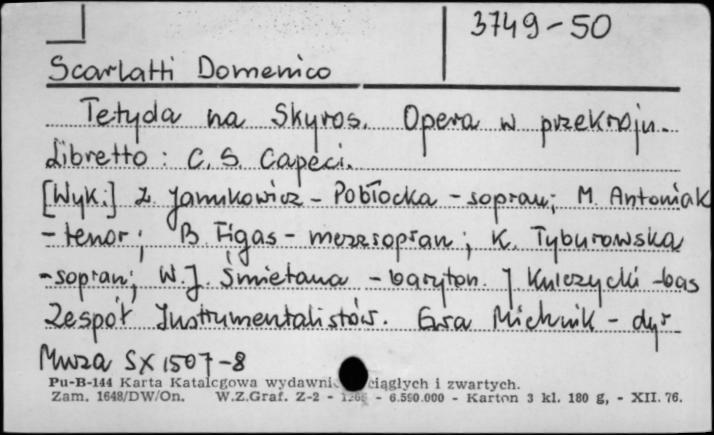 3749-50
Scarlatti Domenico
Tetyda na Skyros. Opera w przekroju.
Libretto: C. S. Capeci.
[Wyk.:] Z. Janukowicz - Pobłocka - sopran; M. Antoniak
- tenor; B. Figas - mezzsopran; K. Tyburowska
- sopran; W. J. Śmietana - baryton. J Knieżycki - bas
Zespół Instrumentalistów. Ewa Michnik - dyr
Muza SX 1507-8
Pu-B-144 Karta Katalogowa wydawni ciągłych i zwartych.
Zam. 1648/DW/On. W.Z.Graf. Z-2 - - 6.590.000 - Karton 3 kl. 180 g, - XII. 76.